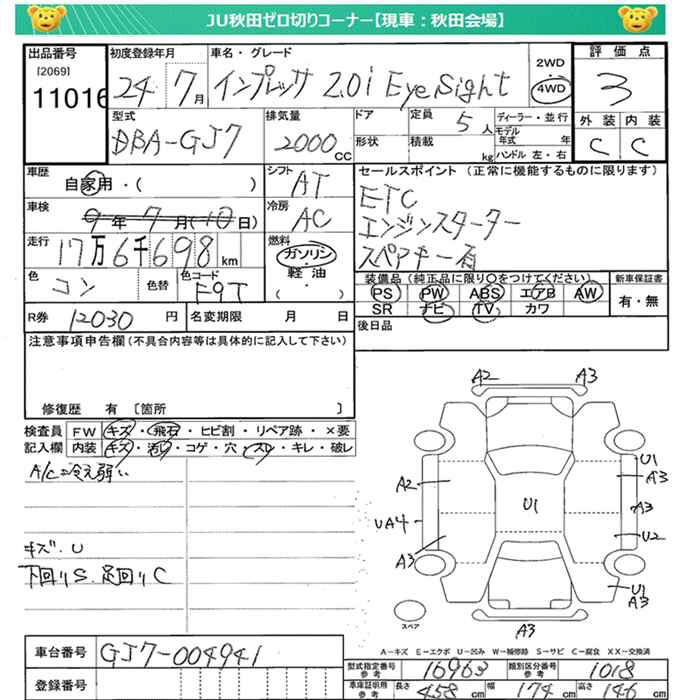 JU秋田ゼロ切りコーナー【現車：秋田会場】
出品番号
[2069]
11016
初度登録年月
24 7月
車名・グレード
インプレッサ 2.0i EyeSight
2WD
4WD
評価点
3
外装 内装
C C
型式
DBA-GJ7
排気量
2000cc
ドア
形状
定員
5人
積載
kg
ディーラー・並行
モデル年式 年
ハンドル 左・右
車歴
自家用・( )
シフト
AT
車検
9年7月(10日)
冷房
AC
走行
17万6千698km
燃料
ガソリン・軽油・( )
色
コン
色替
色コード
F9T
セールスポイント（正常に機能するものに限ります）
ETC
エンジンスターター
スペアキー有
装備品（純正品に限り○をつけてください）
PS PW ABS エアB AW
SR ナビ TV カワ
新車保証書
有・無
R券 12030円
名変期限 月 日
後日品
注意事項申告欄（不具合内容等は具体的に記入して下さい）
修復歴 有 [箇所 ]
検査員記入欄
FW キズ・飛石・ヒビ割・リペア跡・×要
内装 キズ・汚れ・コゲ・穴・スレ・キレ・破レ
A/C冷え弱い
キズ.U
下回りS.足回りC
A2 A3
U1
A3
A2
U1
A3
UA4
U2
A3
U1
A3
スペア
A3
A－キズ E－エクボ U－凹み W－補修跡 S－サビ C－腐食 XX－交換済
車台番号 GJ7-004941
登録番号
型式指定番号 参考 16963
類別区分番号 参考 1018
車庫証明用 参考 長さ 458cm 幅 174cm 高さ 146cm